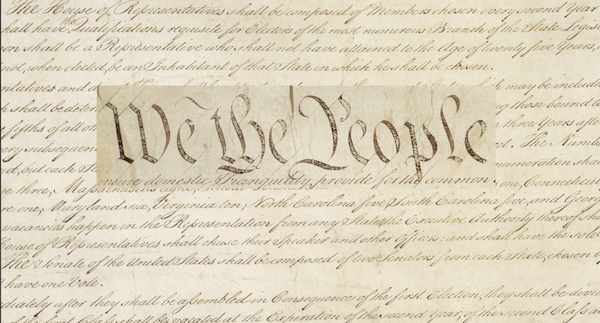 The House of Representatives shall be composed of Members chosen every second Year
shall have the Qualifications requisite for Electors of the most numerous Branch of the State Legis
on shall be a Representative who shall not have attained to the Age of twenty five Years,
not, when elected, be an Inhabitant of that State in which he shall be chosen.
entatives and d which may be include
shall be deter ng those bound to
fifths of all oth three Years afte
ery subsequent The Numb
We the People
d, but each Sta numeration shall
insure domestic Tranquility, provide for the common
se three, Massachus one, Connecticu
ve one, Maryland six, Virginia ten, North Carolina five, South Carolina five, and Georg
vacancies happen in the Representation from any State, the Executive Authority thereof sha
House of Representatives shall chuse their Speaker and other Officers; and shall have the sole
The Senate of the United States shall be composed of two Senators from each State, chosen
have one Vote.
diately after they shall be assembled in Consequence of the first Election, they shall be divid
of the first Class shall be vacated at the Expiration of the second Year, of the second Class a